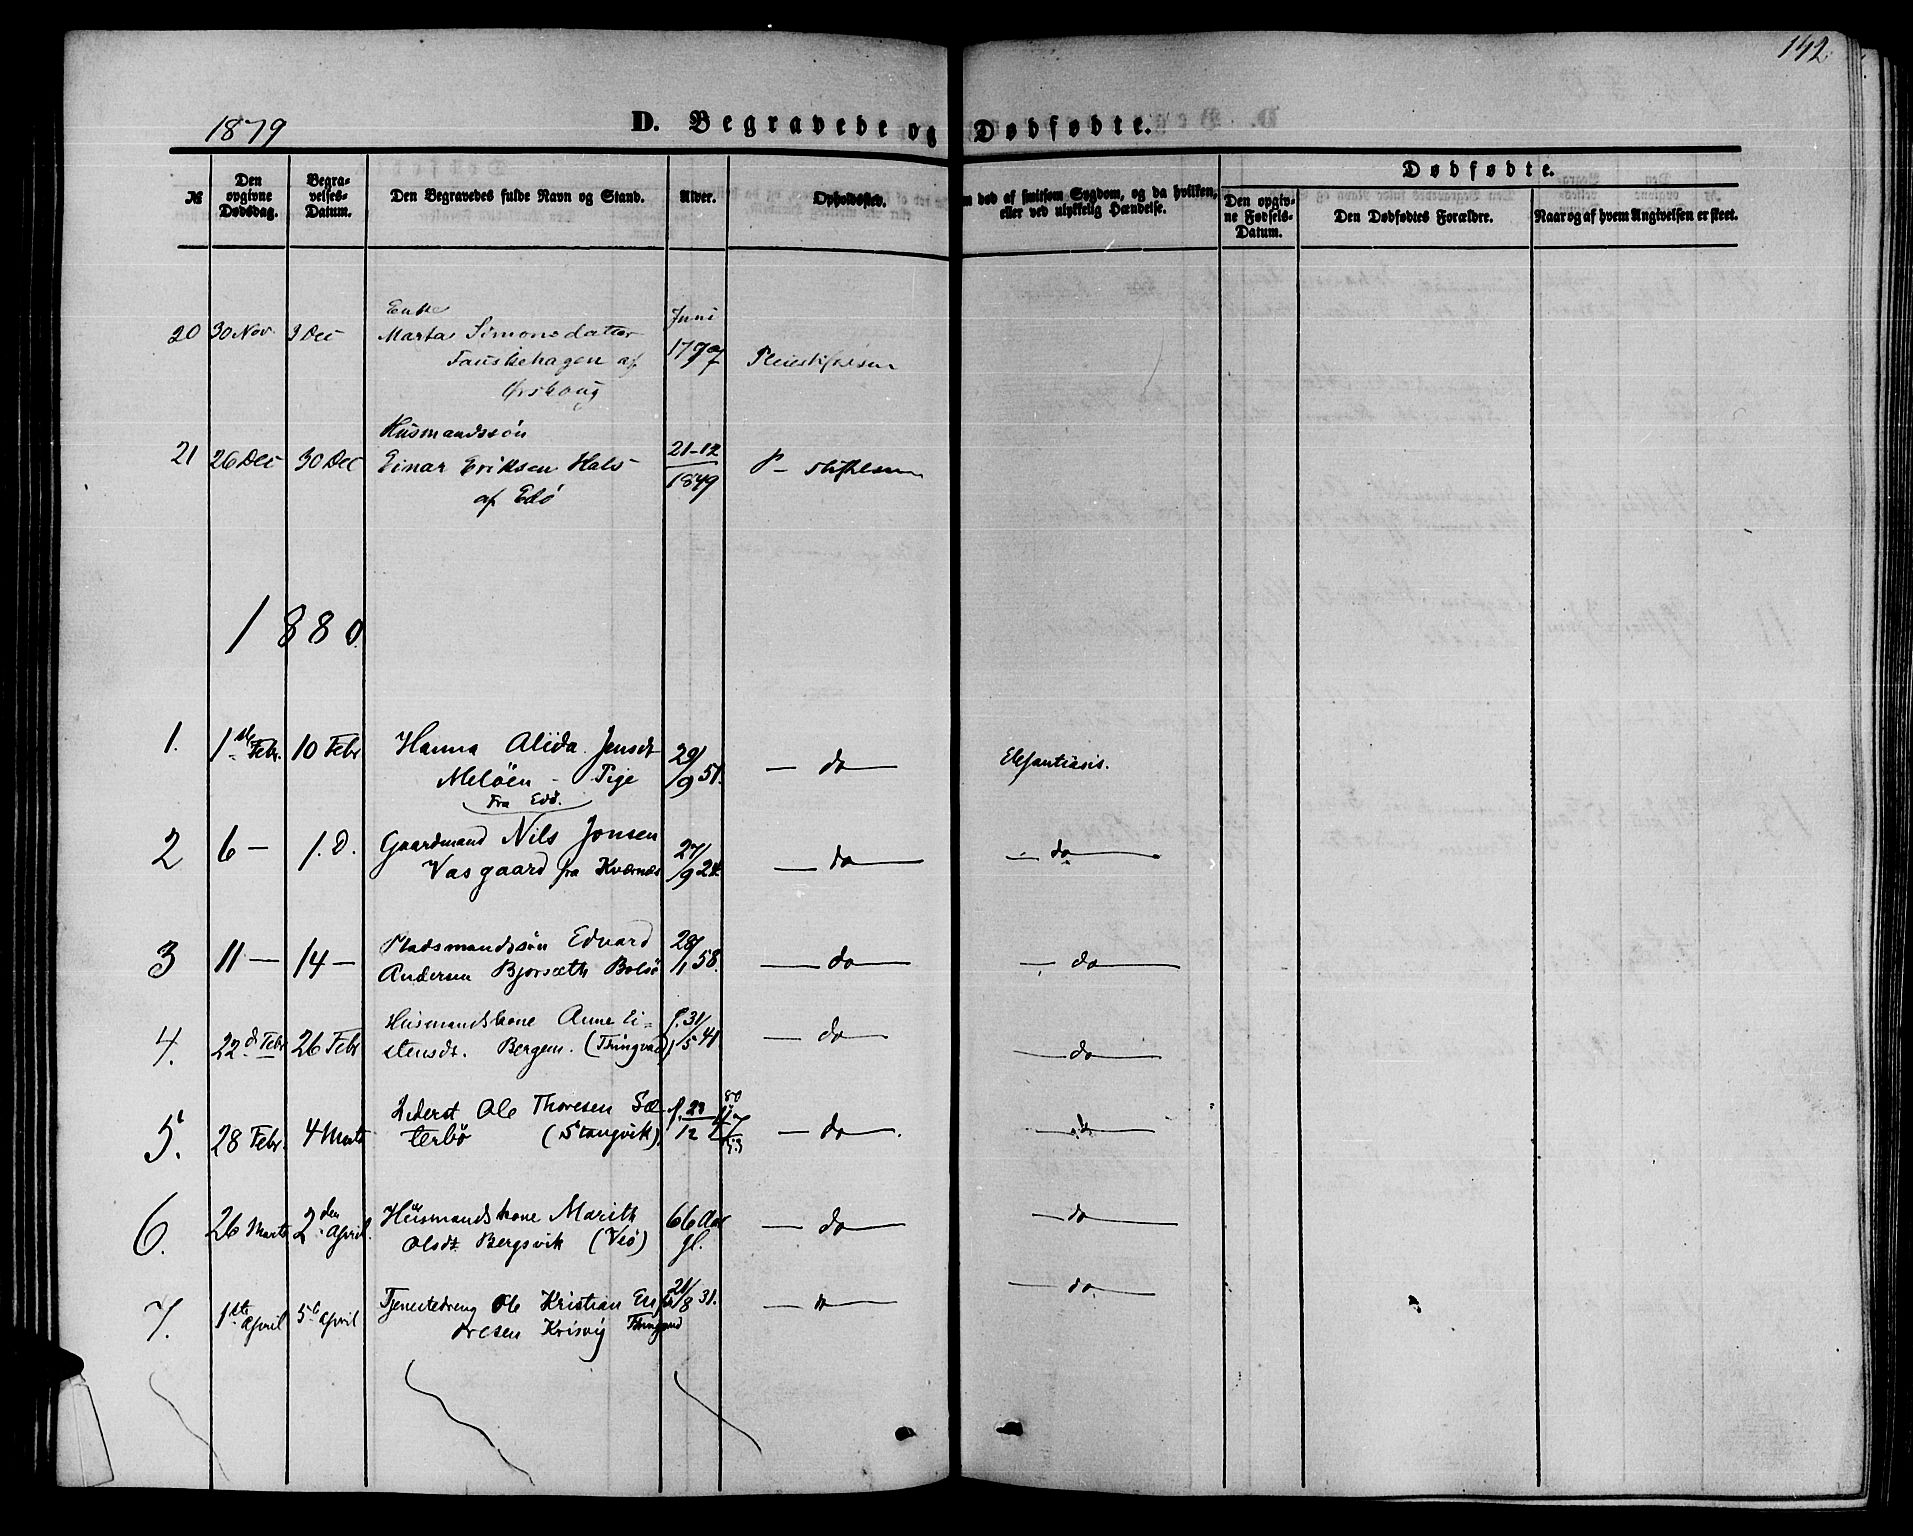 142
1879
D. Begravede og Dødfødte.
№
Den opgivne Dødsdag.
Begravelses-Datum.
Den Begravedes fulde Navn og Stand.
Alder.
Opholdssted.
død af smitsom Sygdom, og da hvilken, eller ved ulykkelig Hændelse.
Dødfødte.
Den opgivne Fødsels-Datum.
Den Dødfødtes Forældre.
Naar og af hvem Angivelsen er skeet.
Enke
20 30 Nov 3 Dec Marta Simonsdatter Juni
Fauskehagen af 1797
Ørskoug
Husmandssøn
21 26 Dec 30 Dec Einar Eriksen Hals 21-12 P -
af Edö 1849
1880
1. 1ste Febr. 10 Febr Hanna Alida Jensdt 29/9 51. — do — Elefantiasis.
Melöen - Pige
fra Edö.
2 6 — 1. D. Gaardmand Nils Jonsen 27/9 24. — do — — do —
Vasgaard fra Kværnæs
3 11 — 14 — Pladsmandssön Edvard 28/1 58. — do — — do —
Andersen Bjorsæth Bolsö
4. 22d Febr 26 Febr Husmandskone Anne Ei- f. 31/5 41 — do — — do —
stensdt. Bergem. (Thingvold)
5. 28 Febr. 4 Marts Inderst Ole Thoresen Sæ- — do — — do —
terbö (Stangvik)
6. 26 Marts 2den April. Husmandskone Marith 66 Aar — do — — do —
Olsdt Bergsvik (Veö) gl.
7. 1ste April 5te April Tjenestedreng Ole Kristian En- 21/8 31. — do —
dresen Krisvig